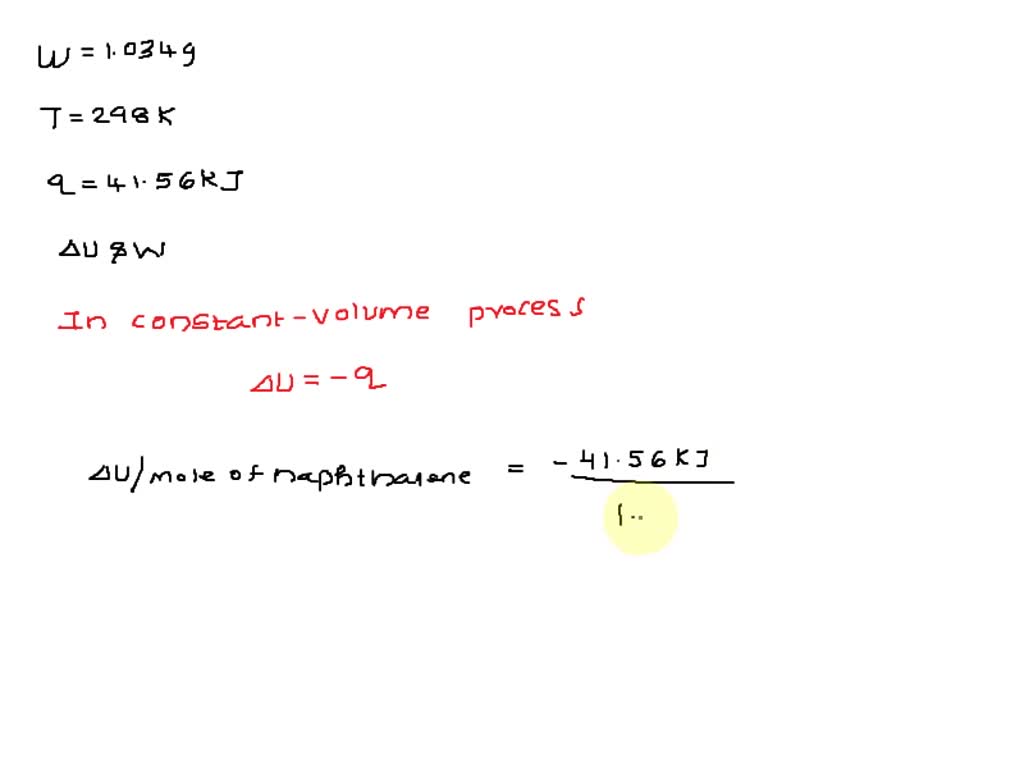 W = 1.034g
T = 298K
q = 41.56KJ
ΔU & W
In constant-volume process
ΔU = -q
ΔU/mole of naphthalene = -41.56KJ
1..